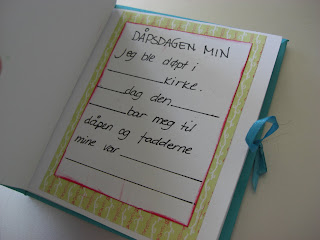 DÅPSDAGEN MIN
Jeg ble døpt i
________ kirke.
____ dag den ____
____ bar meg til
dåpen og fadderne
mine var ________